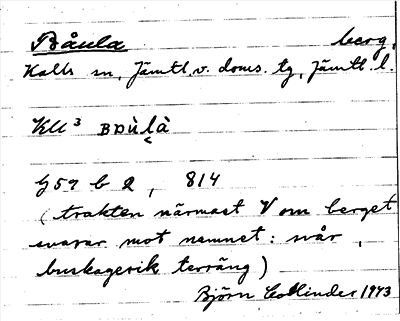 Båula berg,
Kalls sn, Jämtl. v. doms. tg, Jämtl. l.
KU³ BDùlà
G 59 b 2, 814
(trakten närmast V om berget
svarar mot namnet: svår,
buskagerik terräng)
Björn Collinder 1943